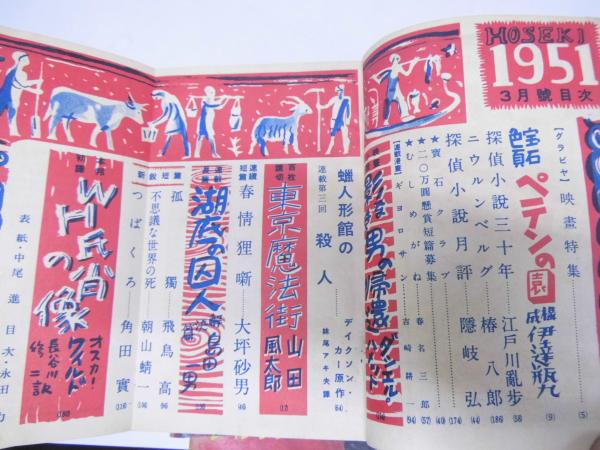 HOSEKI
1951
3月號目次
[グラビヤ] 映畫特集 (5)
宝石色頁 ペテンの園 構成 伊達瓶九 (9)
探偵小説三十年 江戸川亂歩 (58)
ニウルンベルグ 椿八郎 (186)
探偵小説月評 隱岐弘 (174)
★寶石クラブ (44)
★二〇万圓懸賞短篇募集 (40)
★むしめがね 春名三郎 (57)
[連載漫畫] ギョロサン 吉崎耕一 (94)
男の帰還 ダンエル・ハメット
蠟人形館の殺人 連載第三回 デイクソン・カー原作 妹尾アキ夫譯 (64)
百枚讀切 東京魔法街 山田風太郎 (12)
連載短篇 春情狸噺 大坪砂男 (46)
連載長篇 湖底の囚人 島田一男
短篇 孤獨 飛鳥高 (96)
不思議な世界の死 朝山蜻一
新鋭 つばくろ 角田實 (116)
本邦初譯 WH氏の肖像 オスカー・ワイルド 長谷川修二訳 (180)
表紙・中尾進 目次・永田力